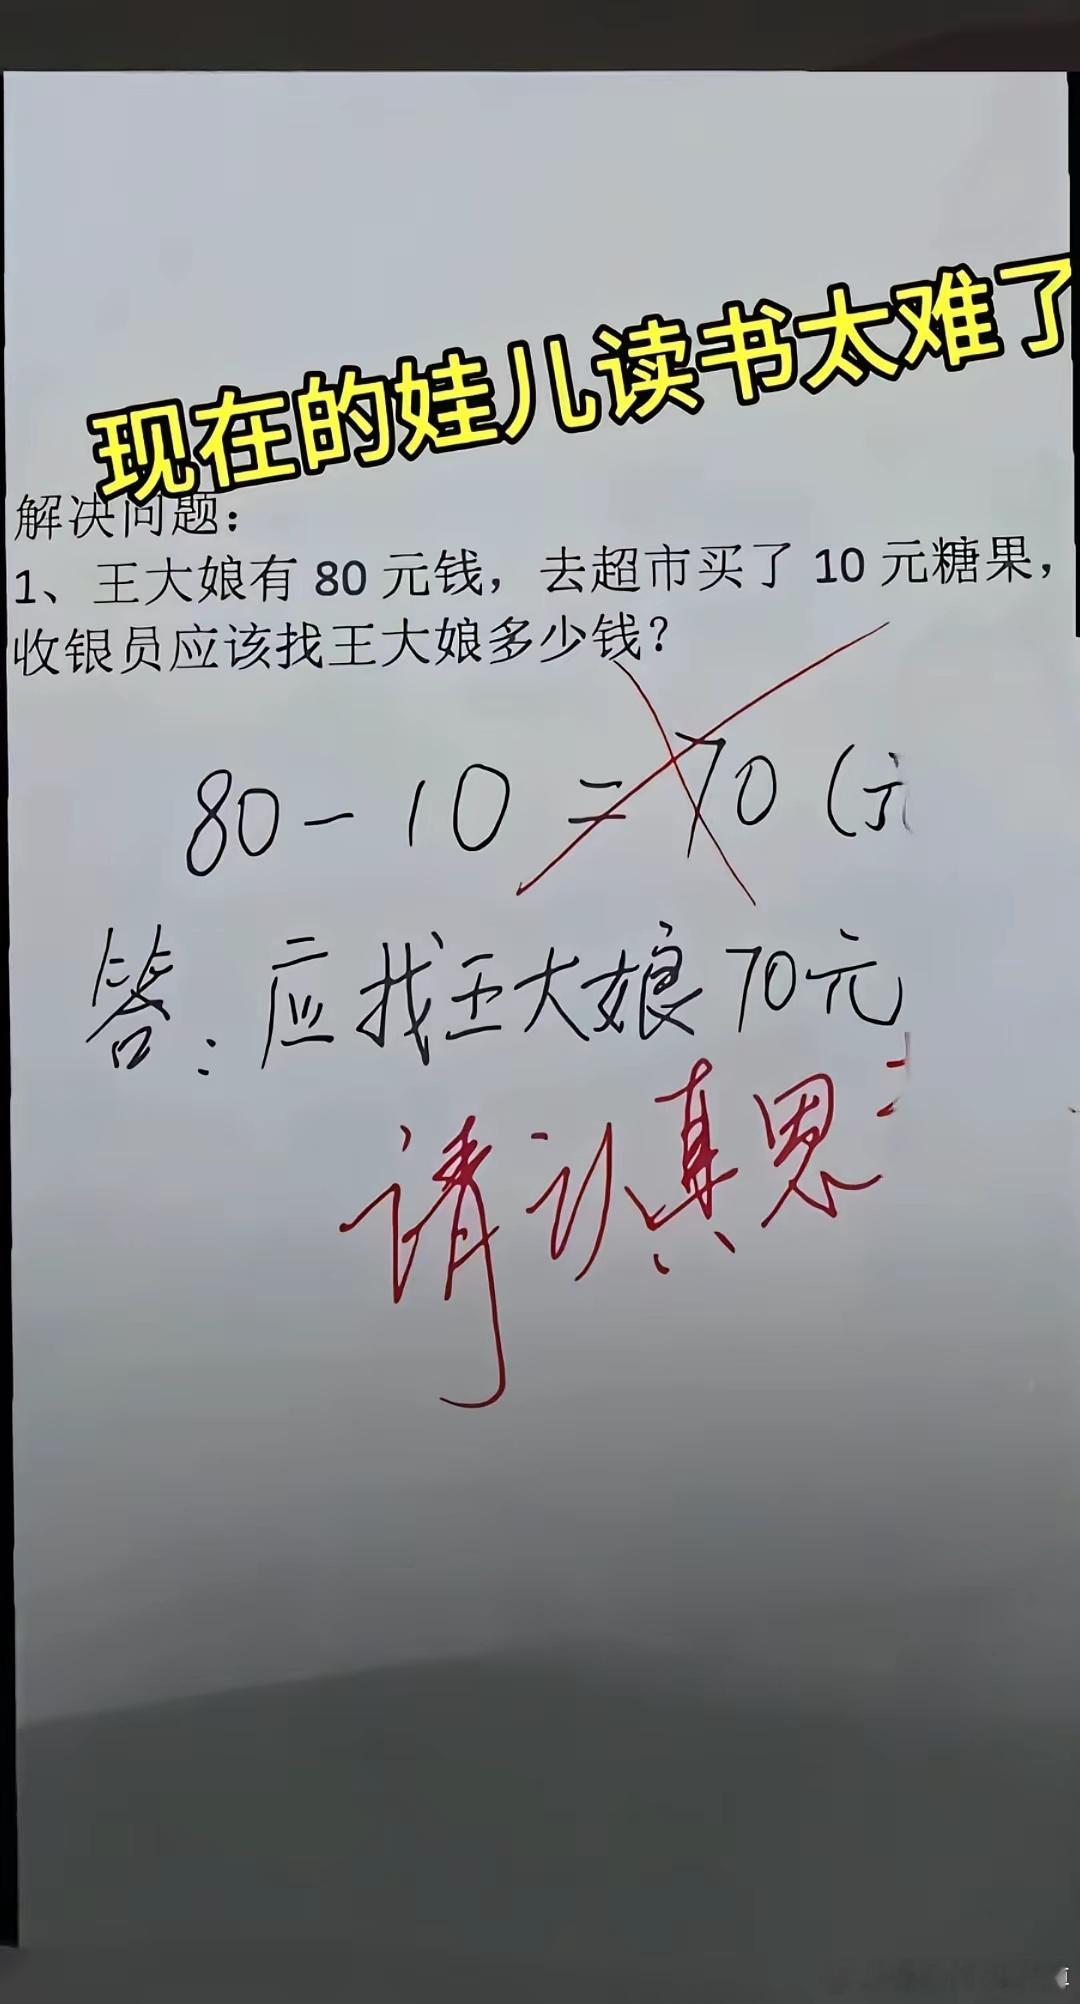 现在的娃儿读书太难了
解决问题：
1、王大娘有 80 元钱，去超市买了 10 元糖果，
收银员应该找王大娘多少钱？
80－10＝70（元
答：应找王大娘70元
请认真思